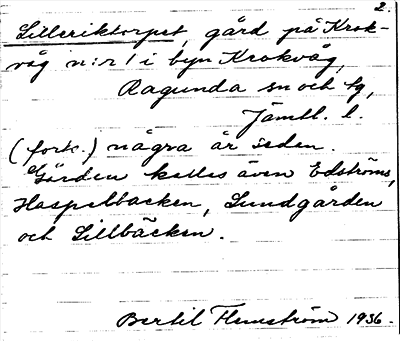 2.
Lilleriktorpet, gård på Krok-
våg n:r 1 i byn Krokvåg,
Ragunda sn och tg,
Jämtl. l.
(fork.) några år sedan.
Gården kallas även Edströms,
Haspelbacken, Lundgården
och Lillbäcken.
Bertil Flemström 1936.